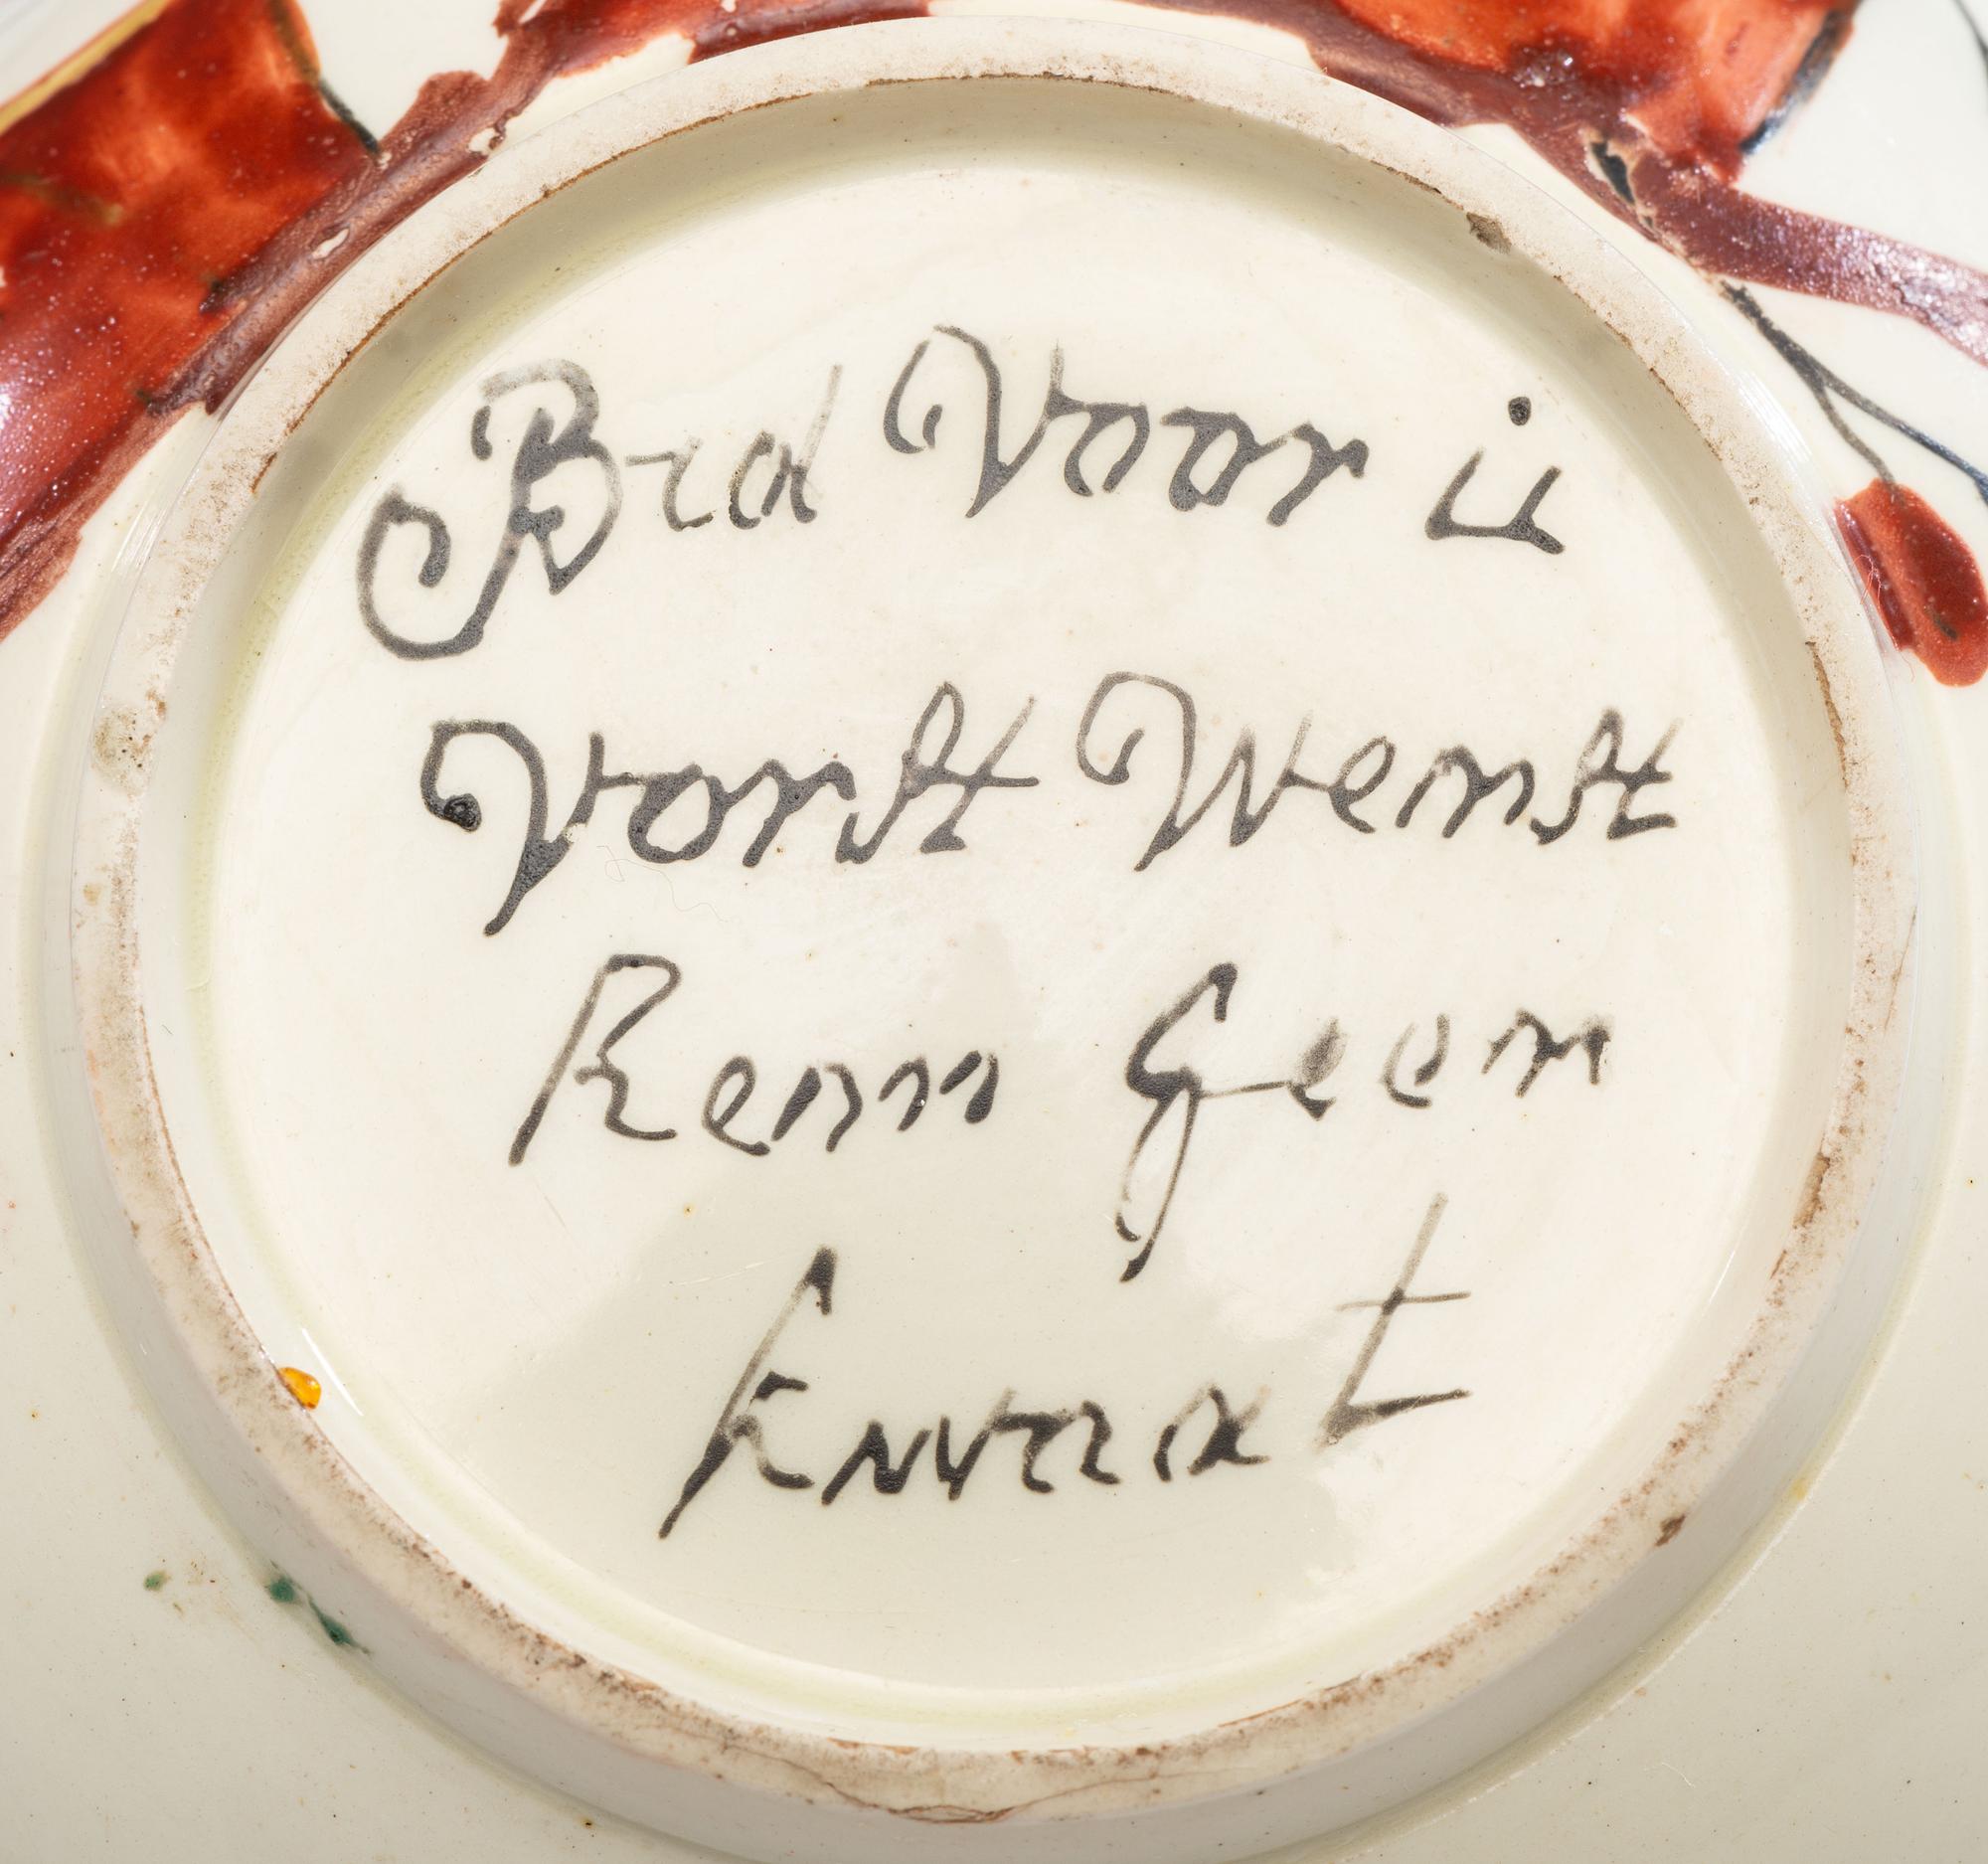 Bid Voor u
Vorst Wenst
Hem Geen
kwaat